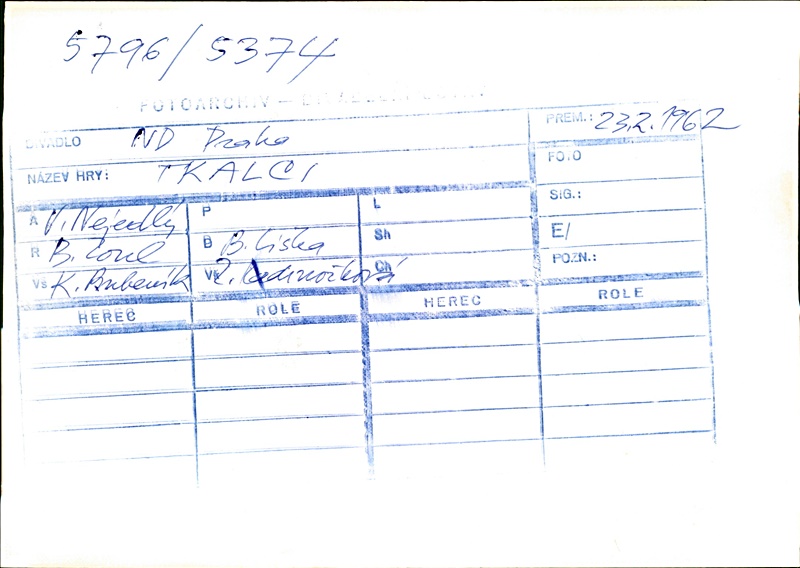 5796/5374
FOTOARCHIV –
DIVADLO ND Praha PREM.: 23.2.1962
NÁZEV HRY: TKALCI FOTO
A V. Nejedlý P L SIG.:
R B. Zoul B B. Liška Sh E/
Vs K. Bubeník Vk Z. Kadrnožková Ch POZN.:
HEREC ROLE HEREC ROLE